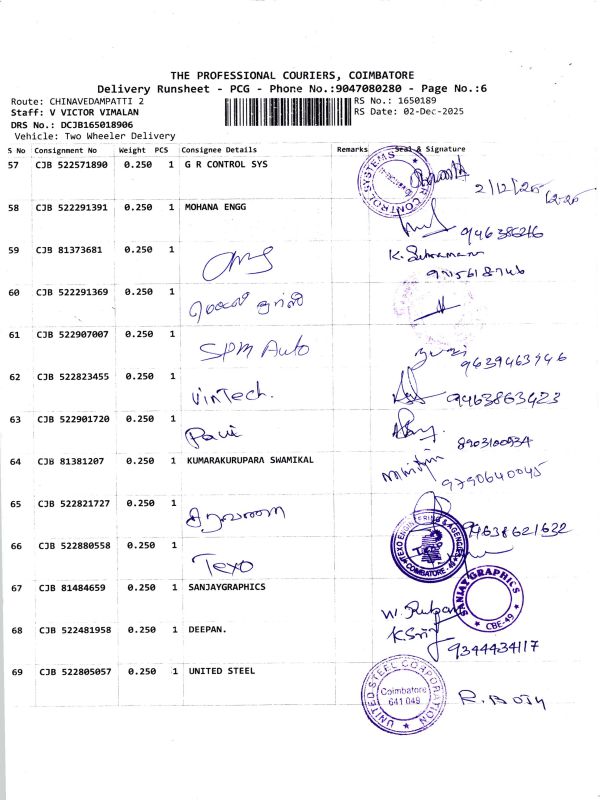 THE PROFESSIONAL COURIERS, COIMBATORE
Delivery Runsheet - PCG - Phone No.:9047080280 - Page No.:6
Route: CHINAVEDAMPATTI 2 RS No.: 1650189
Staff: V VICTOR VIMALAN RS Date: 02-Dec-2025
DRS No.: DCJB165018906
Vehicle: Two Wheeler Delivery
S No Consignment No Weight PCS Consignee Details Remarks Seal & Signature
57 CJB 522571890 0.250 1 G R CONTROL SYS
2/12/25
58 CJB 522291391 0.250 1 MOHANA ENGG
59 CJB 81373681 0.250 1
60 CJB 522291369 0.250 1
61 CJB 522907007 0.250 1
SPM Auto 9639463946
62 CJB 522823455 0.250 1
VinTech. 9463863423
63 CJB 522901720 0.250 1
Pavi
64 CJB 81381207 0.250 1 KUMARAKURUPARA SWAMIKAL
9790640045
65 CJB 522821727 0.250 1
66 CJB 522880558 0.250 1
Texo
TEXO ENGINEERING & AGENCIES
COIMBATORE
67 CJB 81484659 0.250 1 SANJAYGRAPHICS
SANJAY GRAPHICS
CBE-49
68 CJB 522481958 0.250 1 DEEPAN.
9344434117
69 CJB 522805057 0.250 1 UNITED STEEL
UNITED STEEL CORPORATION
Coimbatore
641 049